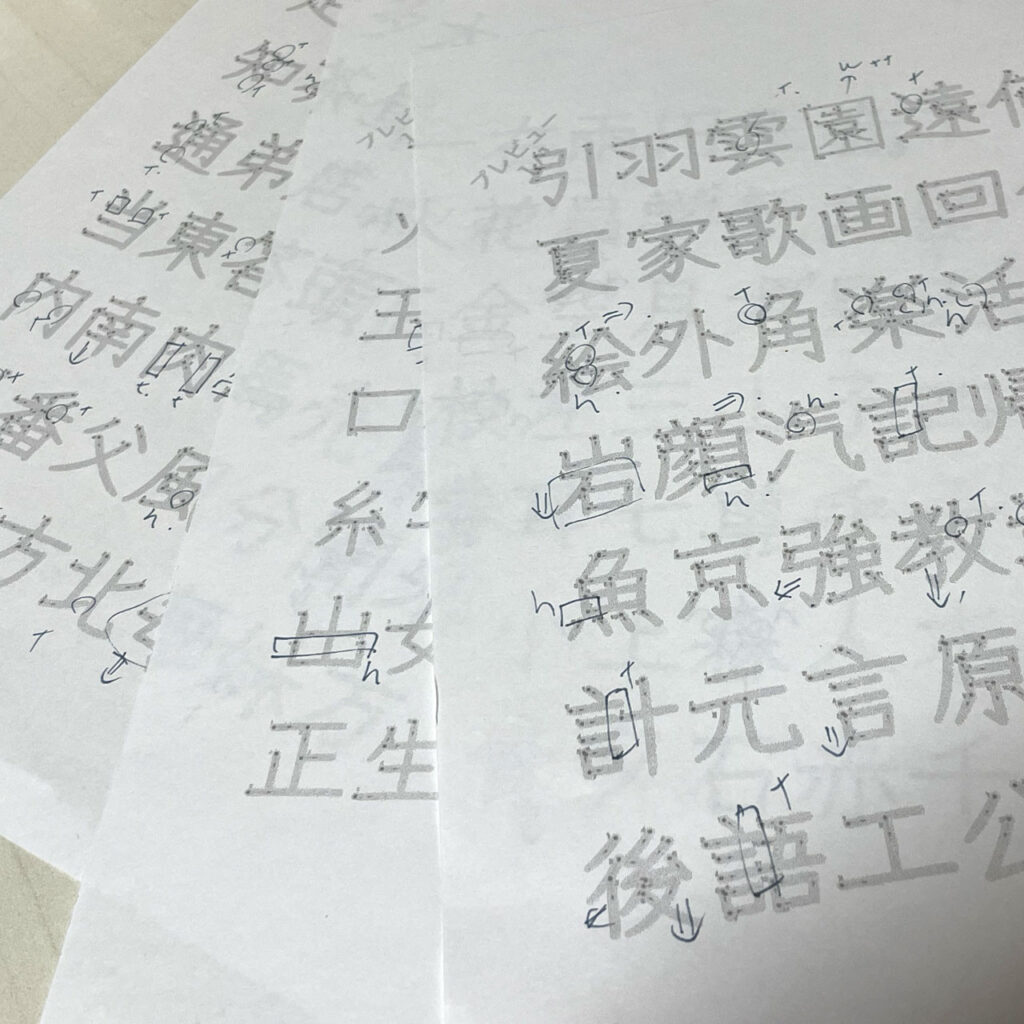 知
通弟
当東
内南肉
番父風
方北
玉
口
糸
山女
正生
プレビュー
引羽雲園遠
夏家歌画回
絵外角楽活
岩顔汽記帰
魚京強教
計元言原
後語工公